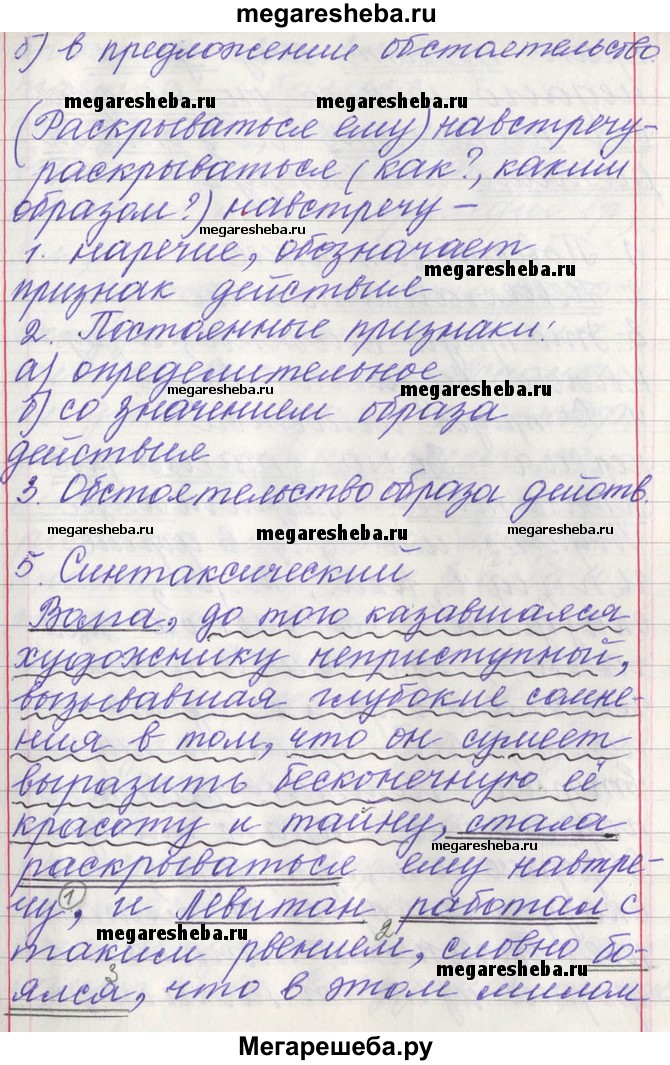 megaresheba.ru
б) в предложении обстоятельство.
megaresheba.ru megaresheba.ru
(Раскрываться ему) навстречу-
раскрываться (как?, каким
образом?) навстречу –
megaresheba.ru
1. наречие, обозначает
megaresheba.ru
признак действия
2. Постоянные признаки:
а) определительное
megaresheba.ru megaresheba.ru
б) со значением образа
действия
3. Обстоятельство образа действ.
megaresheba.ru megaresheba.ru megaresheba.ru
5. Синтаксический
Волга, до того казавшаяся
художнику неприступный,
вызывавшая глубокие сомне-
ния в том, что он сумеет
выразить бесконечную её
красоту и тайну, стала
megaresheba.ru
раскрываться ему навтре-
чу, 1 и Левитан работал с
таким рвением 2, словно бо-
megaresheba.ru
ялся 3, что в этом милом
Мегарешеба.ру